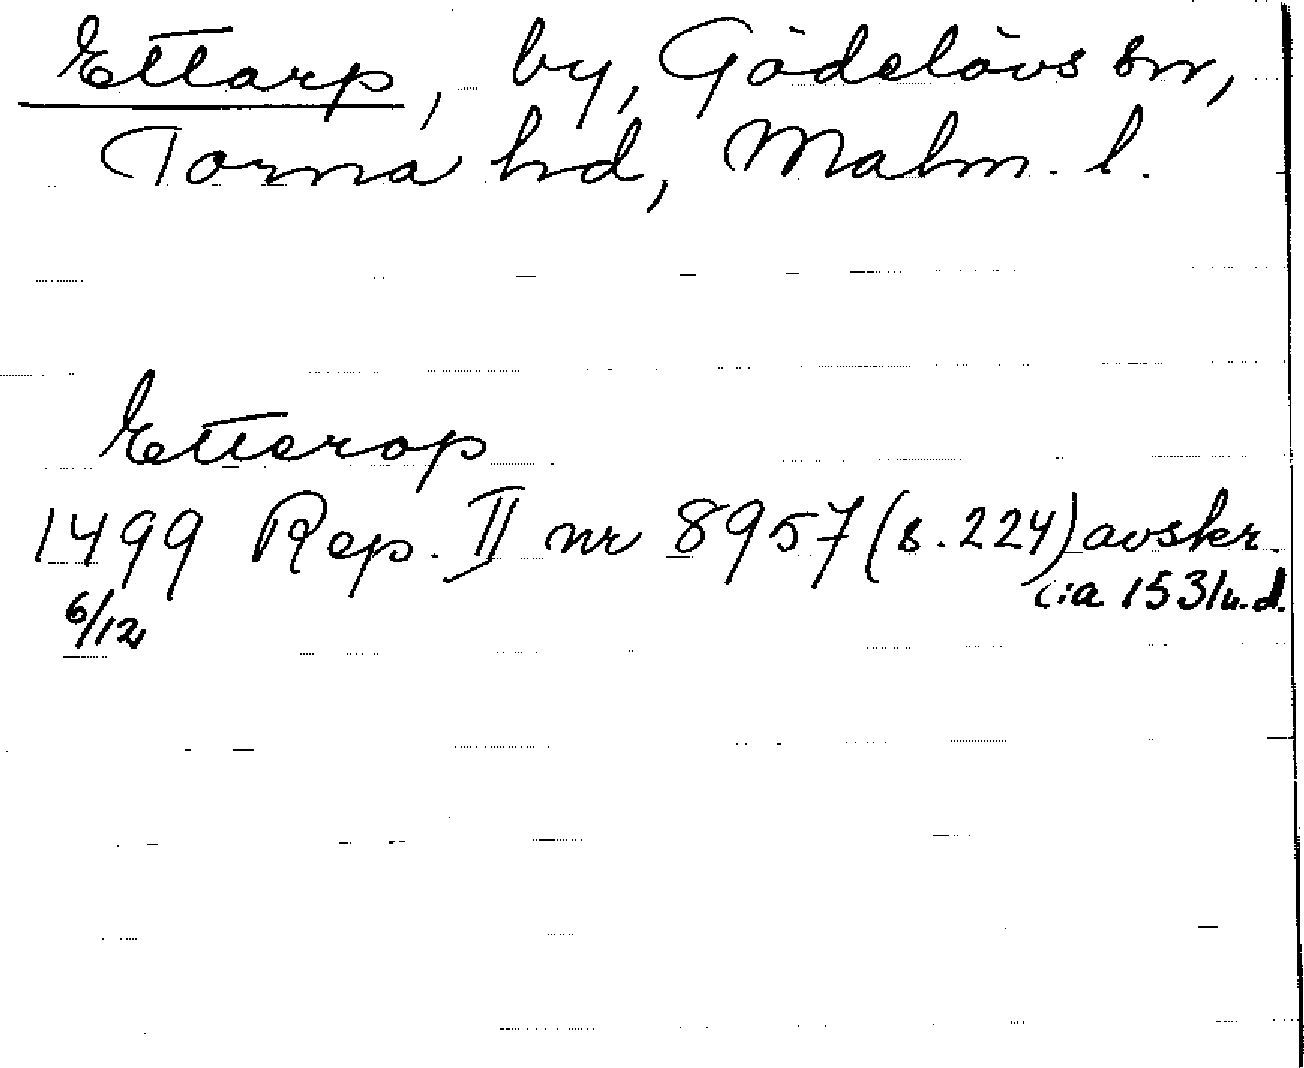 Ettarp, by, Gödelövs sn,
Torna hd, Malm. l.
Etterop
1499 Rep. II nr 8957 (s. 224) avskr.
6/12 cia 1531 u.d.